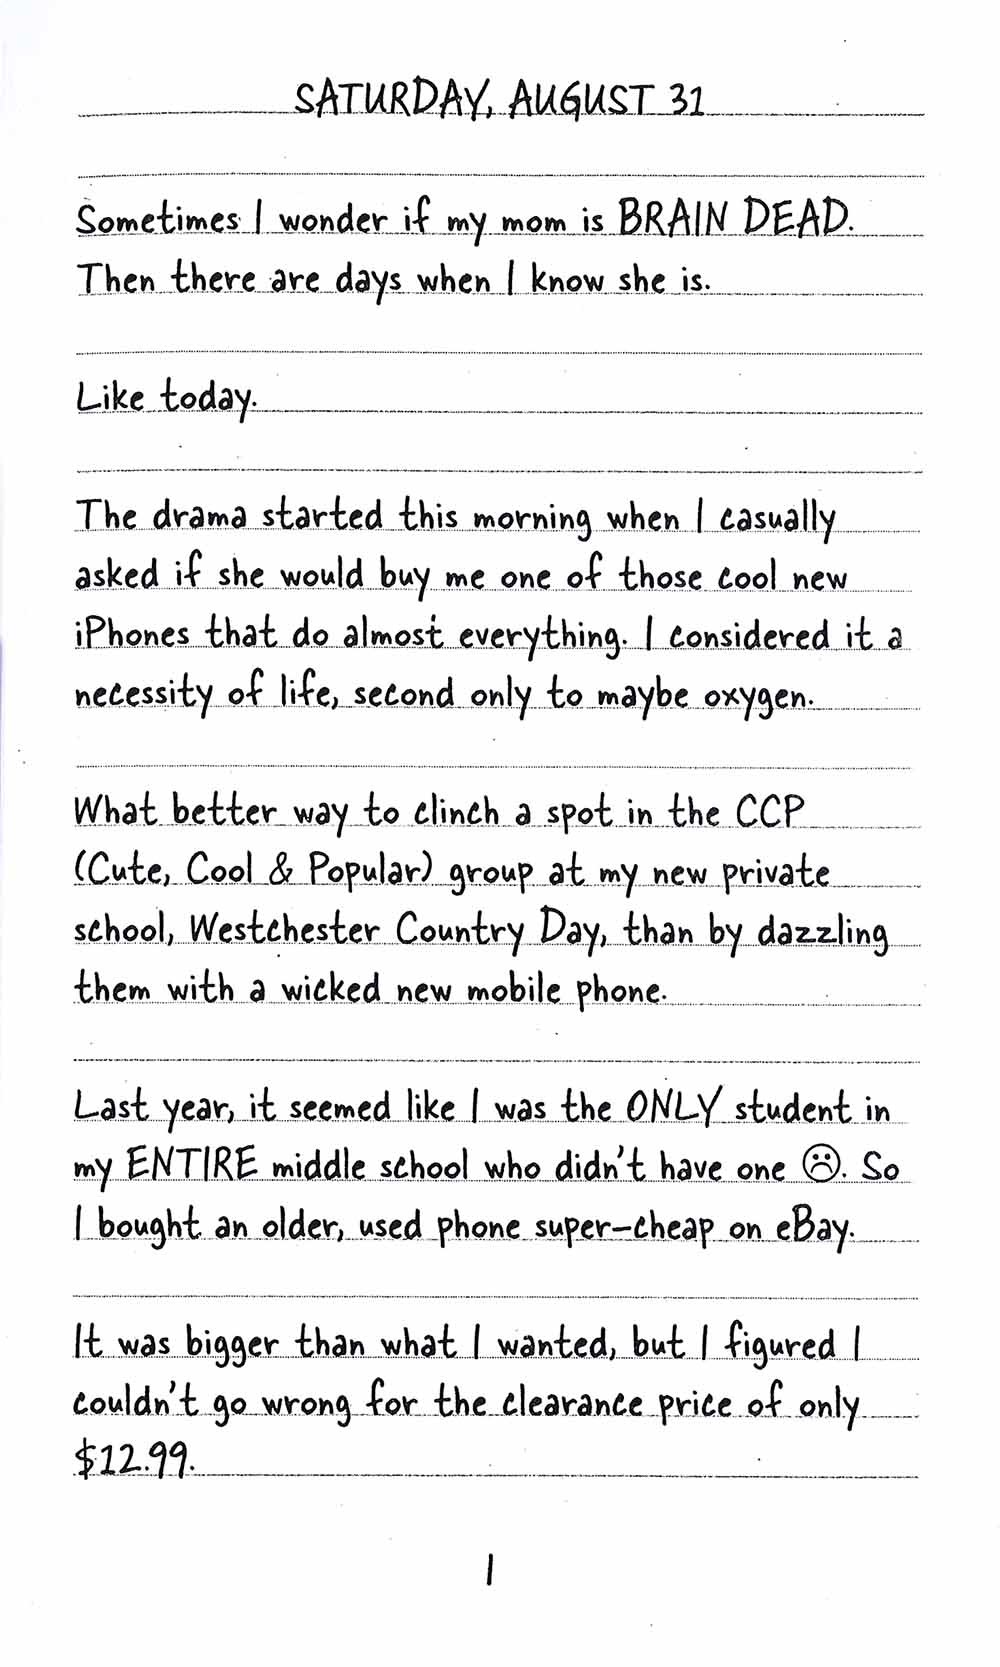 SATURDAY, AUGUST 31
Sometimes I wonder if my mom is BRAIN DEAD.
Then there are days when I know she is.
Like today.
The drama started this morning when I casually
asked if she would buy me one of those cool new
iPhones that do almost everything. I considered it a
necessity of life, second only to maybe oxygen.
What better way to clinch a spot in the CCP
(Cute, Cool & Popular) group at my new private
school, Westchester Country Day, than by dazzling
them with a wicked new mobile phone.
Last year, it seemed like I was the ONLY student in
my ENTIRE middle school who didn't have one ☹. So
I bought an older, used phone super-cheap on eBay.
It was bigger than what I wanted, but I figured I
couldn't go wrong for the clearance price of only
$12.99.
1